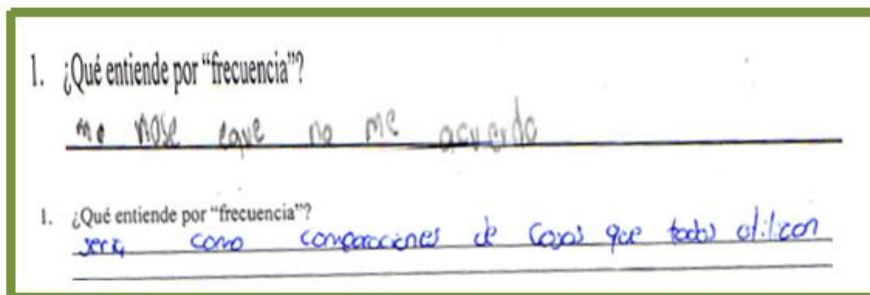 1. ¿Qué entiende por “frecuencia”?
no nose eque no me acuerdo
1. ¿Qué entiende por “frecuencia”?
seria como comparaciones de cosas que todos utilizan